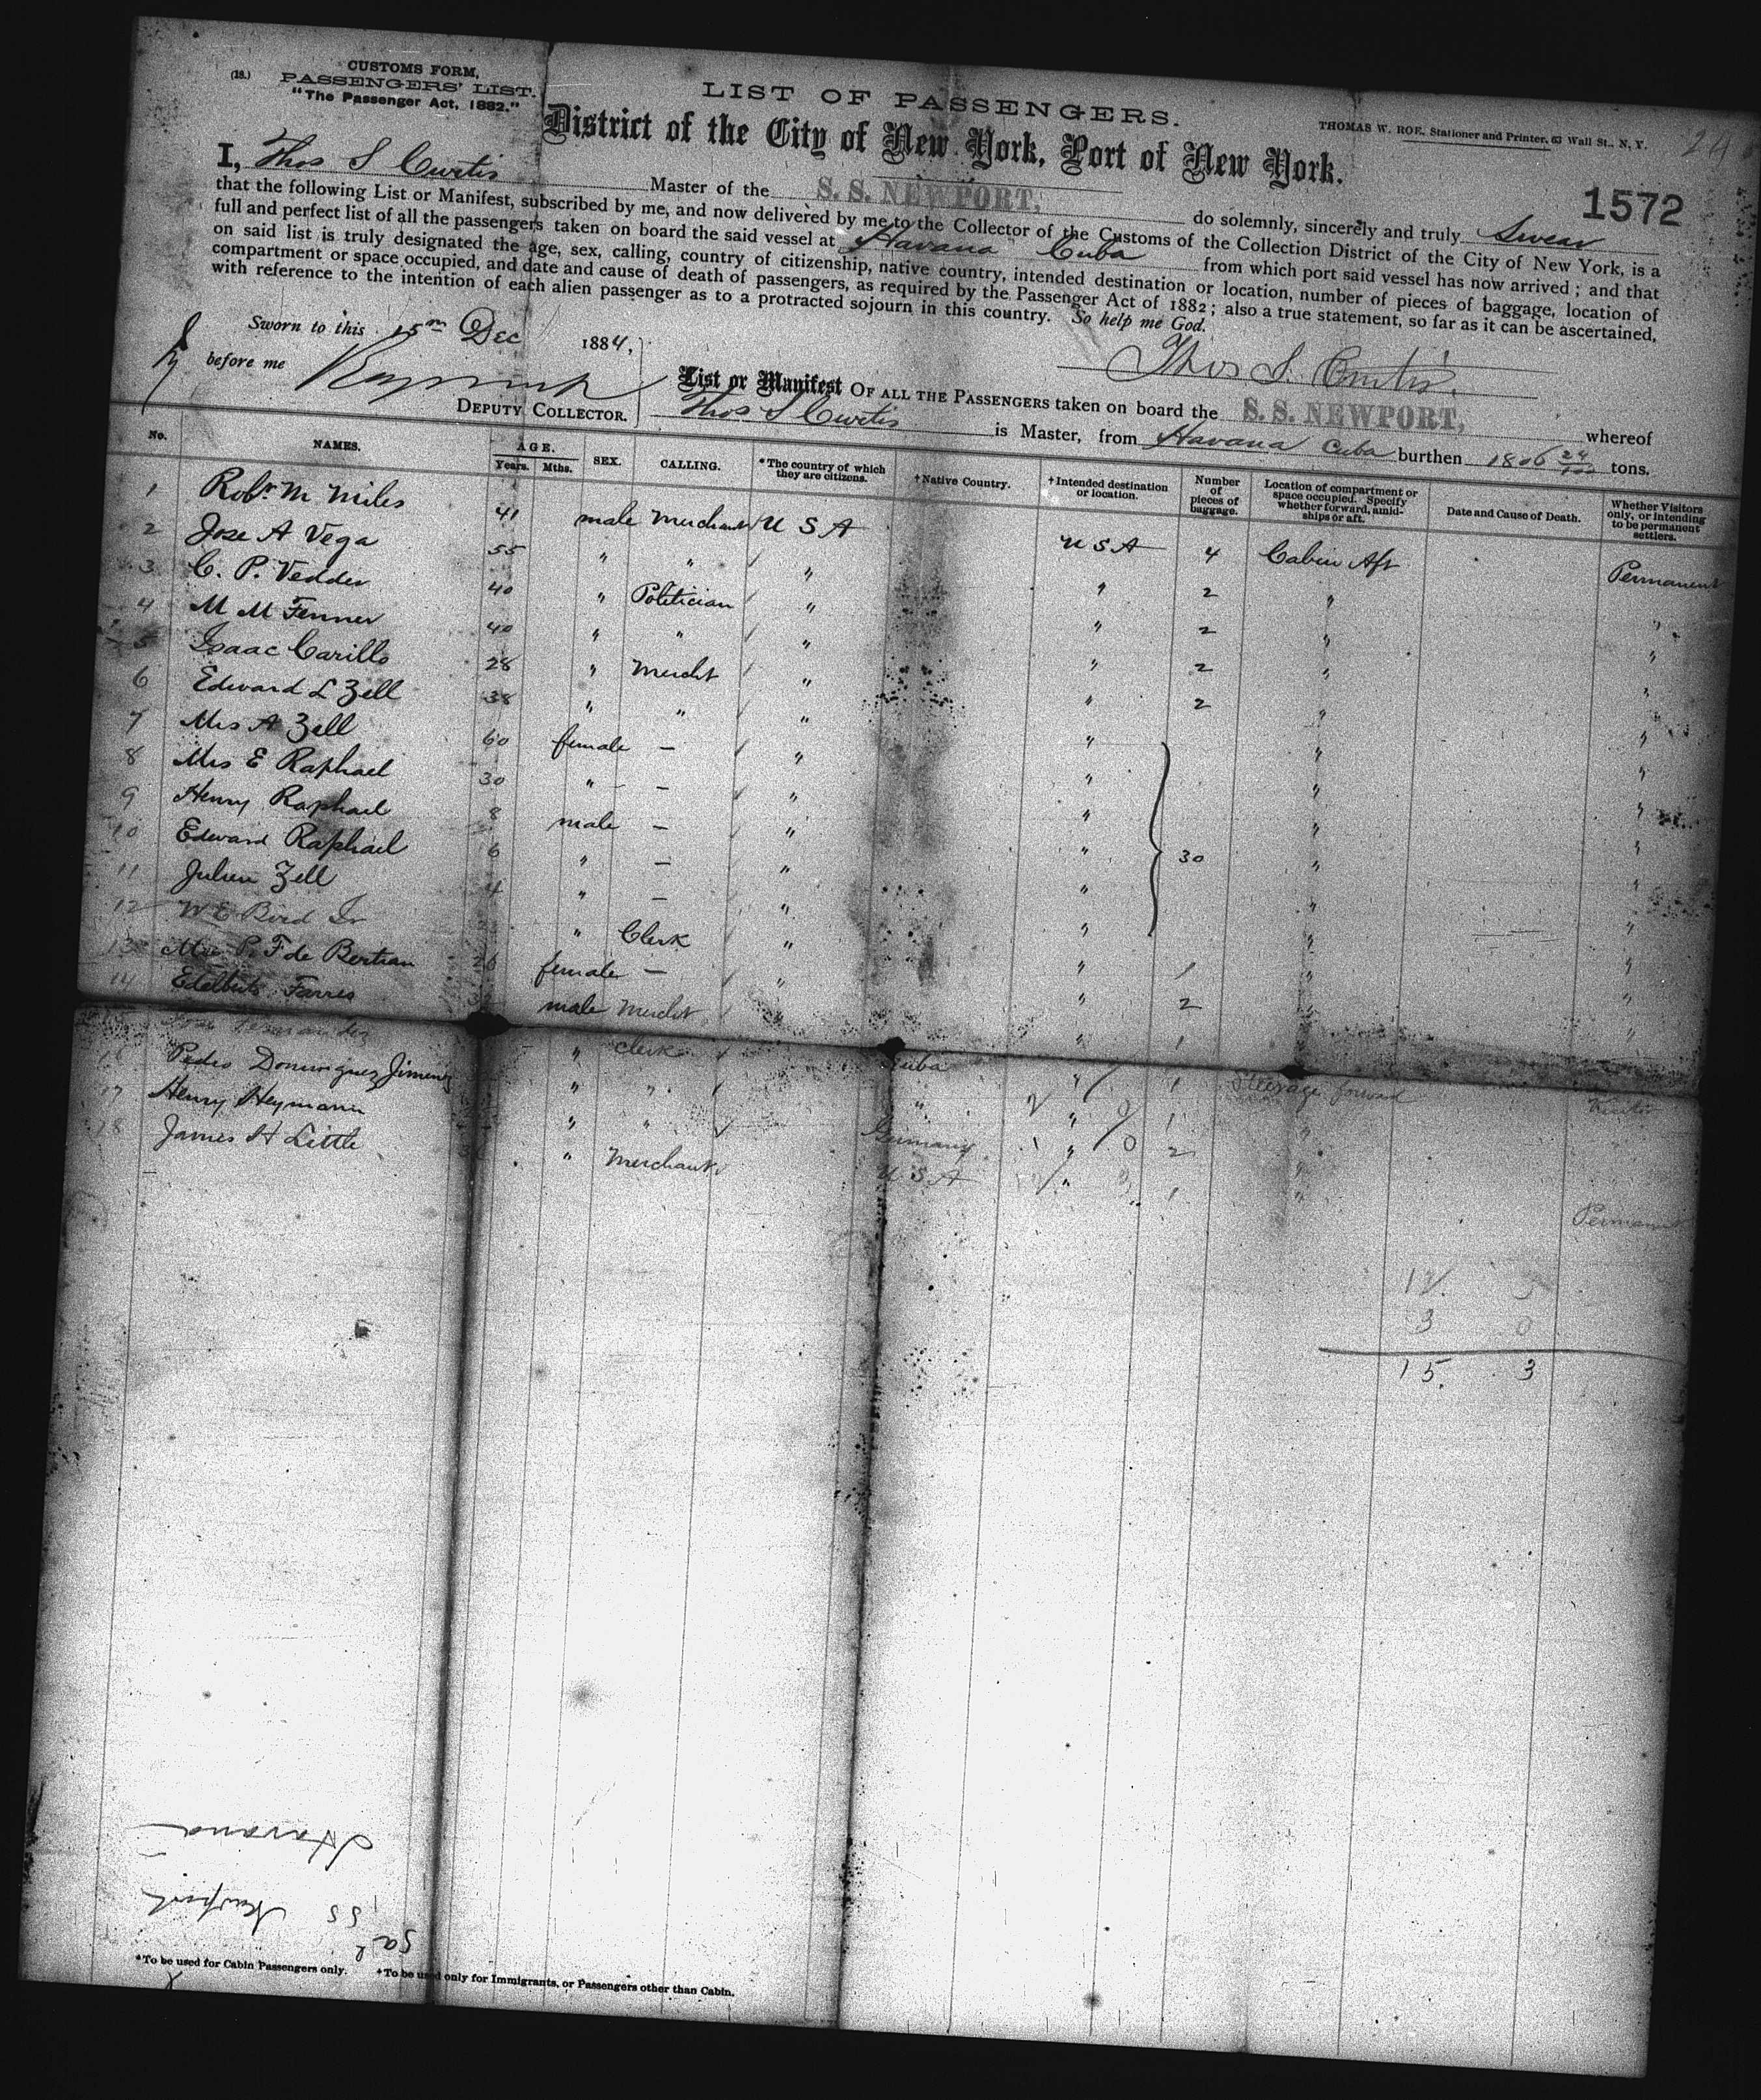 (18.)
CUSTOMS FORM,
PASSENGERS' LIST.
"The Passenger Act, 1882."
LIST OF PASSENGERS.
District of the City of New York, Port of New York.
THOMAS W. ROE, Stationer and Printer, 63 Wall St., N. Y.
24
1572
I, Thos S Curtis Master of the S. S. NEWPORT, do solemnly, sincerely and truly Swear
that the following List or Manifest, subscribed by me, and now delivered by me to the Collector of the Customs of the Collection District of the City of New York, is a
full and perfect list of all the passengers taken on board the said vessel at Havana Cuba from which port said vessel has now arrived; and that
on said list is truly designated the age, sex, calling, country of citizenship, native country, intended destination or location, number of pieces of baggage, location of
compartment or space occupied, and date and cause of death of passengers, as required by the Passenger Act of 1882; also a true statement, so far as it can be ascertained,
with reference to the intention of each alien passenger as to a protracted sojourn in this country. So help me God.
Sworn to this 15th Dec 1884,
before me
Thos S. Curtis
DEPUTY COLLECTOR.
List or Manifest OF ALL THE PASSENGERS taken on board the S. S. NEWPORT, whereof
Thos S Curtis is Master, from Havana Cuba burthen 1806 24/100 tons.
No. NAMES. AGE. Years. Mths. SEX. CALLING. *The country of which they are citizens. †Native Country. †Intended destination or location. Number of pieces of baggage. Location of compartment or space occupied. Specify whether forward, amidships or aft. Date and Cause of Death. Whether Visitors only, or intending to be permanent settlers.
1 Robt M Miles 41 male Merchant U S A U S A 4 Cabin Aft Permanent
2 Jose A Vega 55 " " " " 2 " "
3 C. P. Vedder 40 " Politician " " 2 " "
4 M M Fenner 40 " " " " 2 " "
5 Isaac Carillo 28 " Mercht " " 2 " "
6 Edward L Zell 38 " " " " " "
7 Mrs A Zell 60 female — " " " "
8 Mrs E Raphael 30 " — " " " "
9 Henry Raphael 8 male — " " 30 " "
10 Edward Raphael 6 " — " " " "
11 Julien Zell 4 " — " " " "
12 W E Bird Jr " Clerk " " 1 " "
13 P. F de Bertran 26 female — " " 2 " "
14 Edelberto Farres male Mercht " " 1 " "
15 Jose Fernandez " Clerk Cuba " 1 Steerage forward
16 Pedro Dominguez Jimenez " " " " 1 "
17 Henry Heymann " " Germany " 2 "
18 James H Little " Merchant U S A " 1 " Permanent
12
3 0
15. 3
Havana
SS Newport
*To be used for Cabin Passengers only. †To be used only for Immigrants, or Passengers other than Cabin.